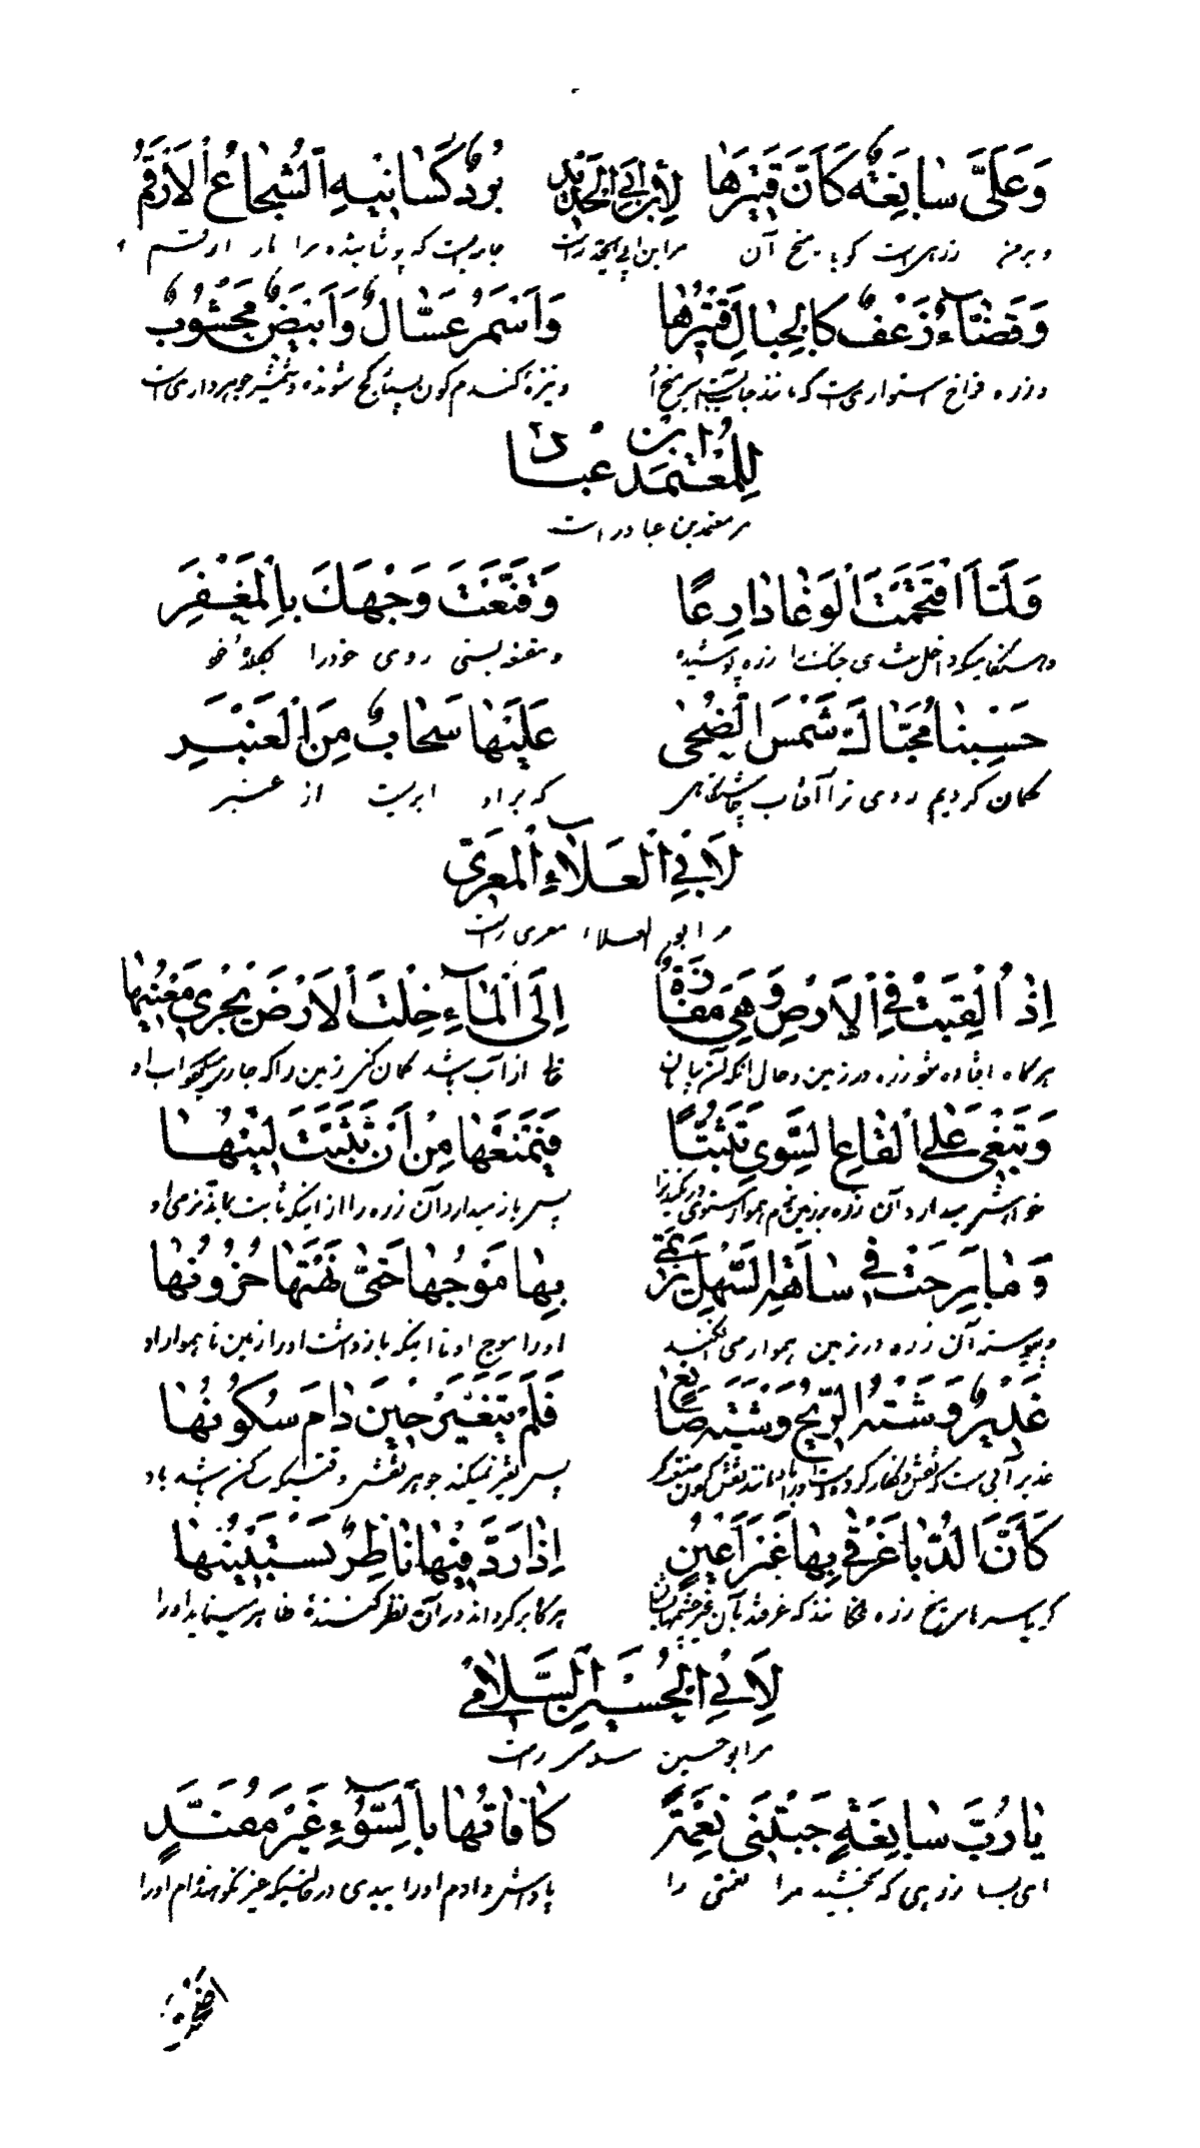 وَعَلَيَّ سابِغَةٌ كَأَنَّ قَتيرَها لِأبن أَبي الحَديد بُردٌ كَسانيهِ الشُجاعُ الأَرقَمُ
و بر من زرهی است گویا میخ آن مر ابن ابی الحدید راست جامه ایست که پوشانیده مرا مار ارقم
وَقَضّاءُ زَعفٌ كَالحِبالِ قَتيرُها وَأَسمَرُ عَسّالٌ وَأَبيَضُ مَخشوبُ
و زره فراخ استواری است که میخ و نیزهٔ گندم گون بسیار کج شونده و شمشیر جوهرداری است
لِلمُعتَمَد ابن عباد
مر معتمد بن عباد راست
وَلَمّا اقتَحَمتَ الوَغا دارِعًا وَقَنَّعتَ وَجهَكَ بِالمِغفَرِ
و هنگامیکه داخل شدی جنگ را زره پوشیده و مقنعه بستی روی خود را بکلاه خود
حَسِبنا مُحَيّاكَ شَمسَ الضُحى عَلَيها سَحابٌ مِنَ العَنبَرِ
گمان کردیم روی ترا آفتاب چاشتگاهی که بر او ابریست از عنبر
لِأَبي العَلاءِ المَعَرّي
مر ابو العلاء معری راست
إِذا أُلقِيَت في الأَرضِ وَهيَ مَفازَةٌ إِلَى الماءِ خِلتَ الأَرضَ يَجري مَعينُها
هرگاه افتاده شود زره در زمین و حال آنکه آن خالی از آب باشد گمان کنی زمین را که جاری میشود آب او
وَتَبغي عَلى القاعِ السَوِيِّ تَثَبُّتًا فَيَمنَعُها مِن أَن تَثَبَّتَ لينُها
پس باز میدارد آن زره را از اینکه ثابت بماند نرمی او
وَما بَرِحَت في ساحَةِ السَهلِ يَرتَمي بِها مَوجُها حَتّى نَهَتها حُزونُها
و پیوسته آن زره در زمین هموار می افکند او را موج او تا اینکه باز داشت او را زمین ناهموار او
غَديرٌ وَشَتهُ الريحُ وَشيَةَ صانِعٍ فَلَم يَتَغَيَّر حينَ دامَ سُكونُها
غدیر آبی است که نقش و نگار کرده است او را باد مانند نقش کردن صنعتگر پس تغیر نمیکند چون ساکن باشد باد
كَأَنَّ الدَبا غَرقى بِها غَيرَ أَعيُنٍ إِذا رَدَّ فيها ناظِرٌ يَستَبينُها
هرگاه برگرداند در آن نظر کنندهٔ ظاهر مینماید او را
لِأَبي الحُسَينِ السَلامي
مر ابو حسین سلامی راست
يا رُبَّ سابِغَةٍ حَبَتني نِعمَةً كافَأتُها بِالسوءِ غَيرَ مُفَنَّدِ
ای بسا زرهی که بخشید مرا نعمتی را پاداش دادم او را ببدی در حالیکه غیر نکوهیده ام او را